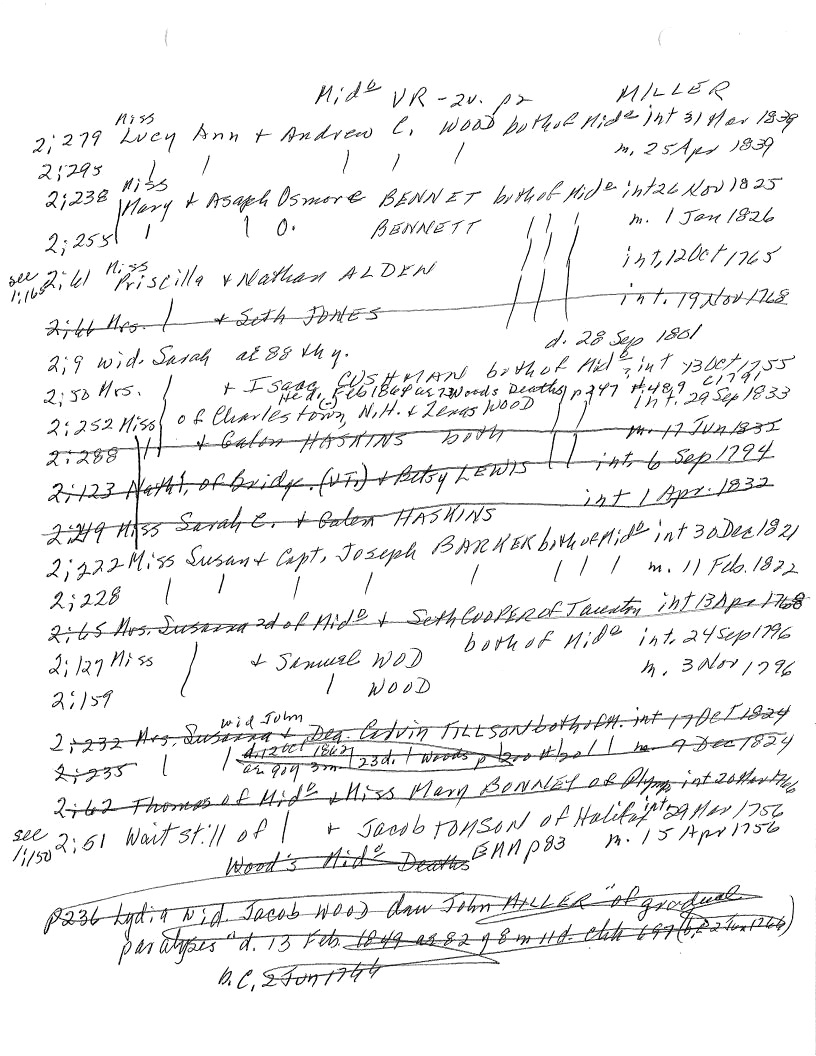 Mido VR - 2v. p2 MILLER
2;279 Miss Lucy Ann & Andrew C. WOOD both of Mido int 31 Mar 1839
2;295 | | | | | m. 25 Apr 1839
2;238 Miss Mary & Asaph Osmore BENNET both of Mido int 26 Nov 1825
2;255 | | O. BENNETT | | | m. 1 Jan 1826
see 1;165 2;61 Miss Priscilla & Nathan ALDEN | | | int, 12 Oct 1765
2;66 Mrs. | & Seth JONES int. 19 Nov 1768
2;9 wid. Sarah at 88th y. d. 28 Sep 1801
2;50 Mrs. | & Isaac CUSHMAN both of Mido, int 13 Oct 1755
He d. Feb 1864 ae 73 Woods Deaths p 247 #489 C1791
2;252 Miss | of Charlestown, N.H. & Zenas WOOD int. 29 Sep 1833
2;288 | | & Galen HASKINS both | | m. 17 Jun 1832
2;123 Nath'l, of Bridge. (VT.) & Betsy LEWIS int. 6 Sep 1794
2;249 Miss Sarah C. & Galen HASKINS int 1 Apr. 1832
2;222 Miss Susan & Capt. Joseph BARKER both of Mido int 30 Dec 1821
2;228 | | | | | | | | m. 11 Feb. 1822
2;65 Mrs. Susanna 2d of Mido & Seth COOPER of Taunton int 13 Apr 1768
2;127 Miss | & Samuel WOD both of Mido int. 24 Sep 1796
2;159 | | WOOD m. 3 Nov 1796
wid John
2;232 Mrs. Susanna & Dea. Calvin TILLSON both of M. int 17 Oct 1824
2;235 | | d. 12 Oct 1862 m. 9 Dec 1824
ae 90y 3m 23d. | Woods p 200
2;62 Thomas of Mido & Miss Mary BONNEY of Plymp int 20 Mar 1766
see 1;150 2;51 Wait still of | & Jacob TOMSON of Halifax int 29 Mar 1756
Wood's Mido Deaths EMM p83 m. 15 Apr 1756
p236 Lydia wid. Jacob WOOD dau John MILLER "of gradual
paralyses" d. 13 Feb. 1849 ae 82 y 8 m 11 d. 697 (b.c. 2 Jun 1766)
B.C. 2 Jun 1766